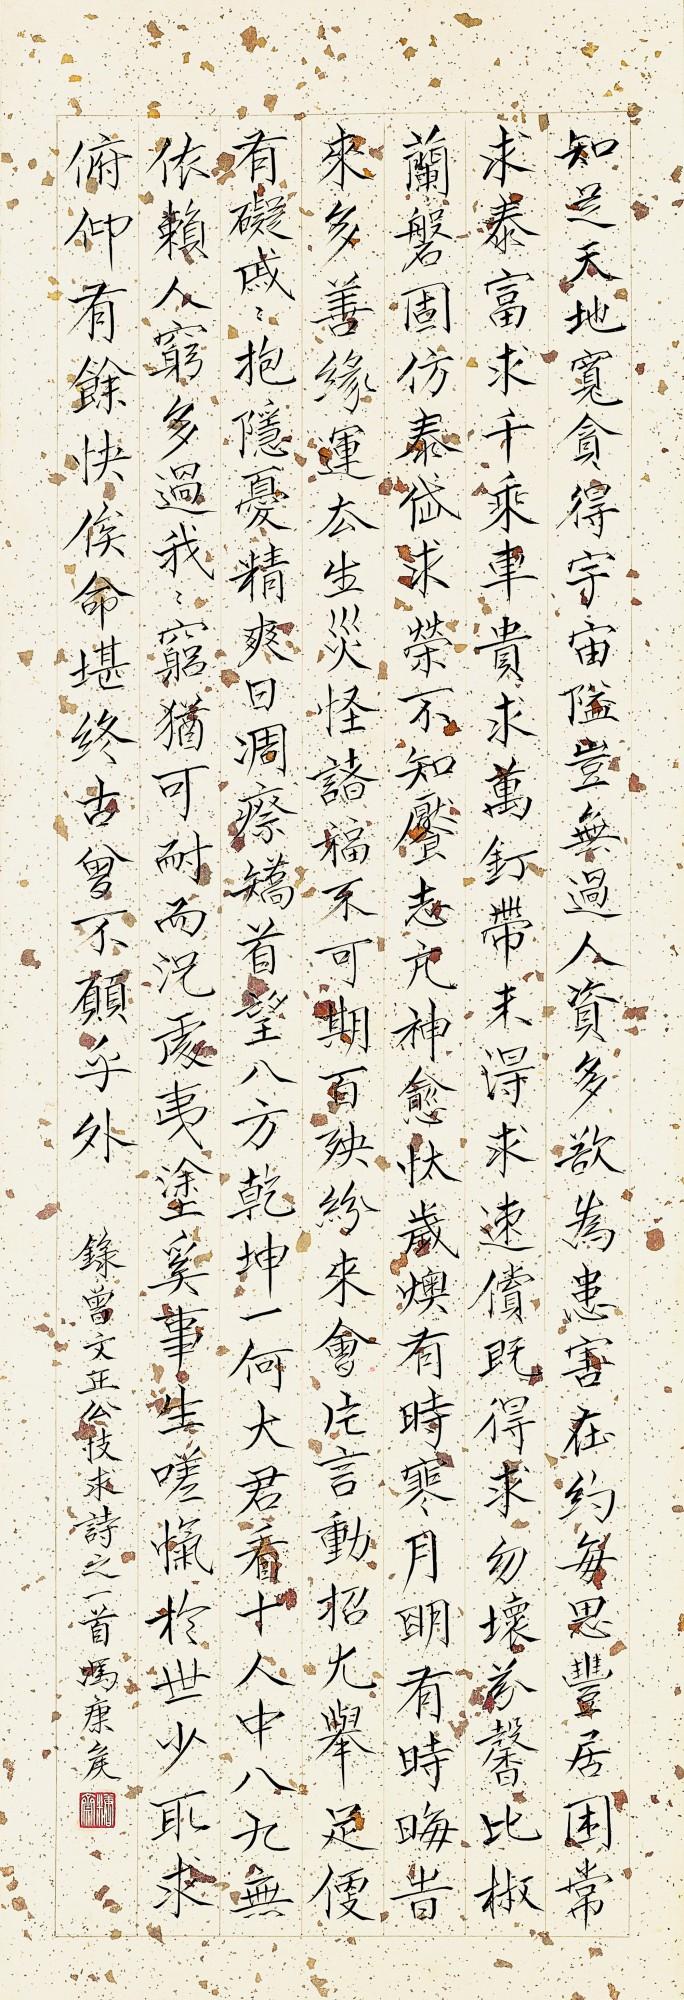 知足天地寬貪得宇宙隘豈無過人資多欲為患害在約每思豐居困常
求泰富求千乘車貴求萬釘帶未得求速償既得求勿壞芬馨比椒
蘭磐固仿泰岱求榮不知饜志亢神愈忕歲燠有時寒月明有時晦昔
來多善緣運去生災怪諸福不可期百殃紛來會片言動招尤舉足便
有礙戚〻抱隱憂精爽日凋瘵矯首望八方乾坤一何大君看十人中八九無
依賴人窮多過我〻窮猶可耐而況處夷塗奚事生嗟愾於世少取求
俯仰有餘快俟命堪終古曾不願乎外
錄曾文正公忮求詩之一首馮康侯